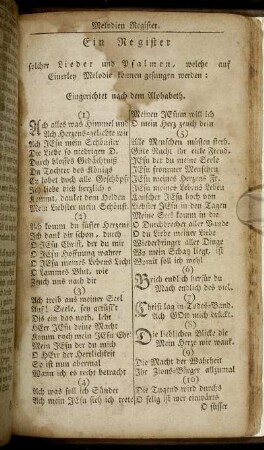 Melodien Register.
Ein Register
solcher Lieder und Psalmen, welche auf
Einerley Melodie können gesungen werden:
Eingerichtet nach dem Alphabeth.
(1)
Ach alles was Himmel und
Ach Herzens-geliebte wir
Ach JEsu mein Schönster
Die Liebe so niedrigen D.
Durch blosses Gedächtniß
Du Tochter des Königs
Es lobet doch alle Geschöpf
Ich liebe dich herzlich o
Kommt, danket dem Helden
Mein Liebster mein Schönst.
(2)
Ach komm du süsser Herzens
Ich dank dir schon, durch
O JEsu Christ, der du mir
O JEsu Hoffnung wahrer
O JEsu meines Lebens Licht
O Lammes Blut, wie
Zeuch uns nach dir
(3)
Ach treib aus meiner Seel
Auf! Seele, sey gerüst't
Dis ein das noth, lehr
HErr JEsu deine Macht
Komm doch mein JEsu Chr.
Mein JEsu der du mich
O HErr der Herrlichkeit
So ist nun abermal
Wann ich es recht betracht
(4)
Ach was soll ich Sünder
Ach mein JEsu sieh ich trete
Meinen JEsum will ich
O mein Herz zeuch dein
(5)
Alle Menschen müssen sterb.
Gute Nacht ihr eitle Freud.
JEsu der du meine Seele
JEsu frommer Menschen
JEsu meines Herzens Fr.
JEsu meines Lebens Leben
Lasset doch von
Liebster JEsu in den Tagen
Meine Seel komm in die
O Durchbrecher aller Bande
O du Liebe meiner Liebe
Wiederbringer aller Dinge
Wo mein Schatz liegt, ist
Womit soll ich wohl
(6)
Brich endlich herfür du
Mach endlich des viel
(7)
Christ lag in Todes-Band.
Ach GOtt mich drückt.
(8)
Die lieblichen Blicke die
Mein Herze wie wank.
(9)
Die Macht der Wahrheit
Ihr Zions-Bürger allzumal
(10)
Die Tugend wird durchs
O selig ist wer einwärts
O süsser